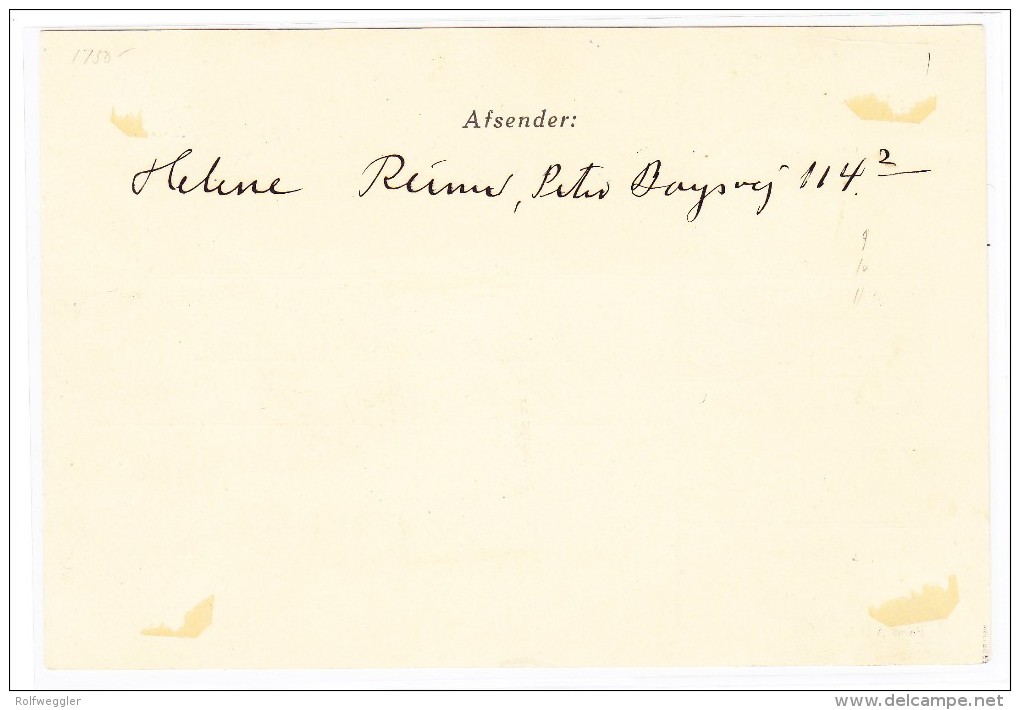 1750
Afsender:
Helene Reimer, Peter Bangsvej 114.2
9
10
11
Rolfweggler
www.delcampe.net